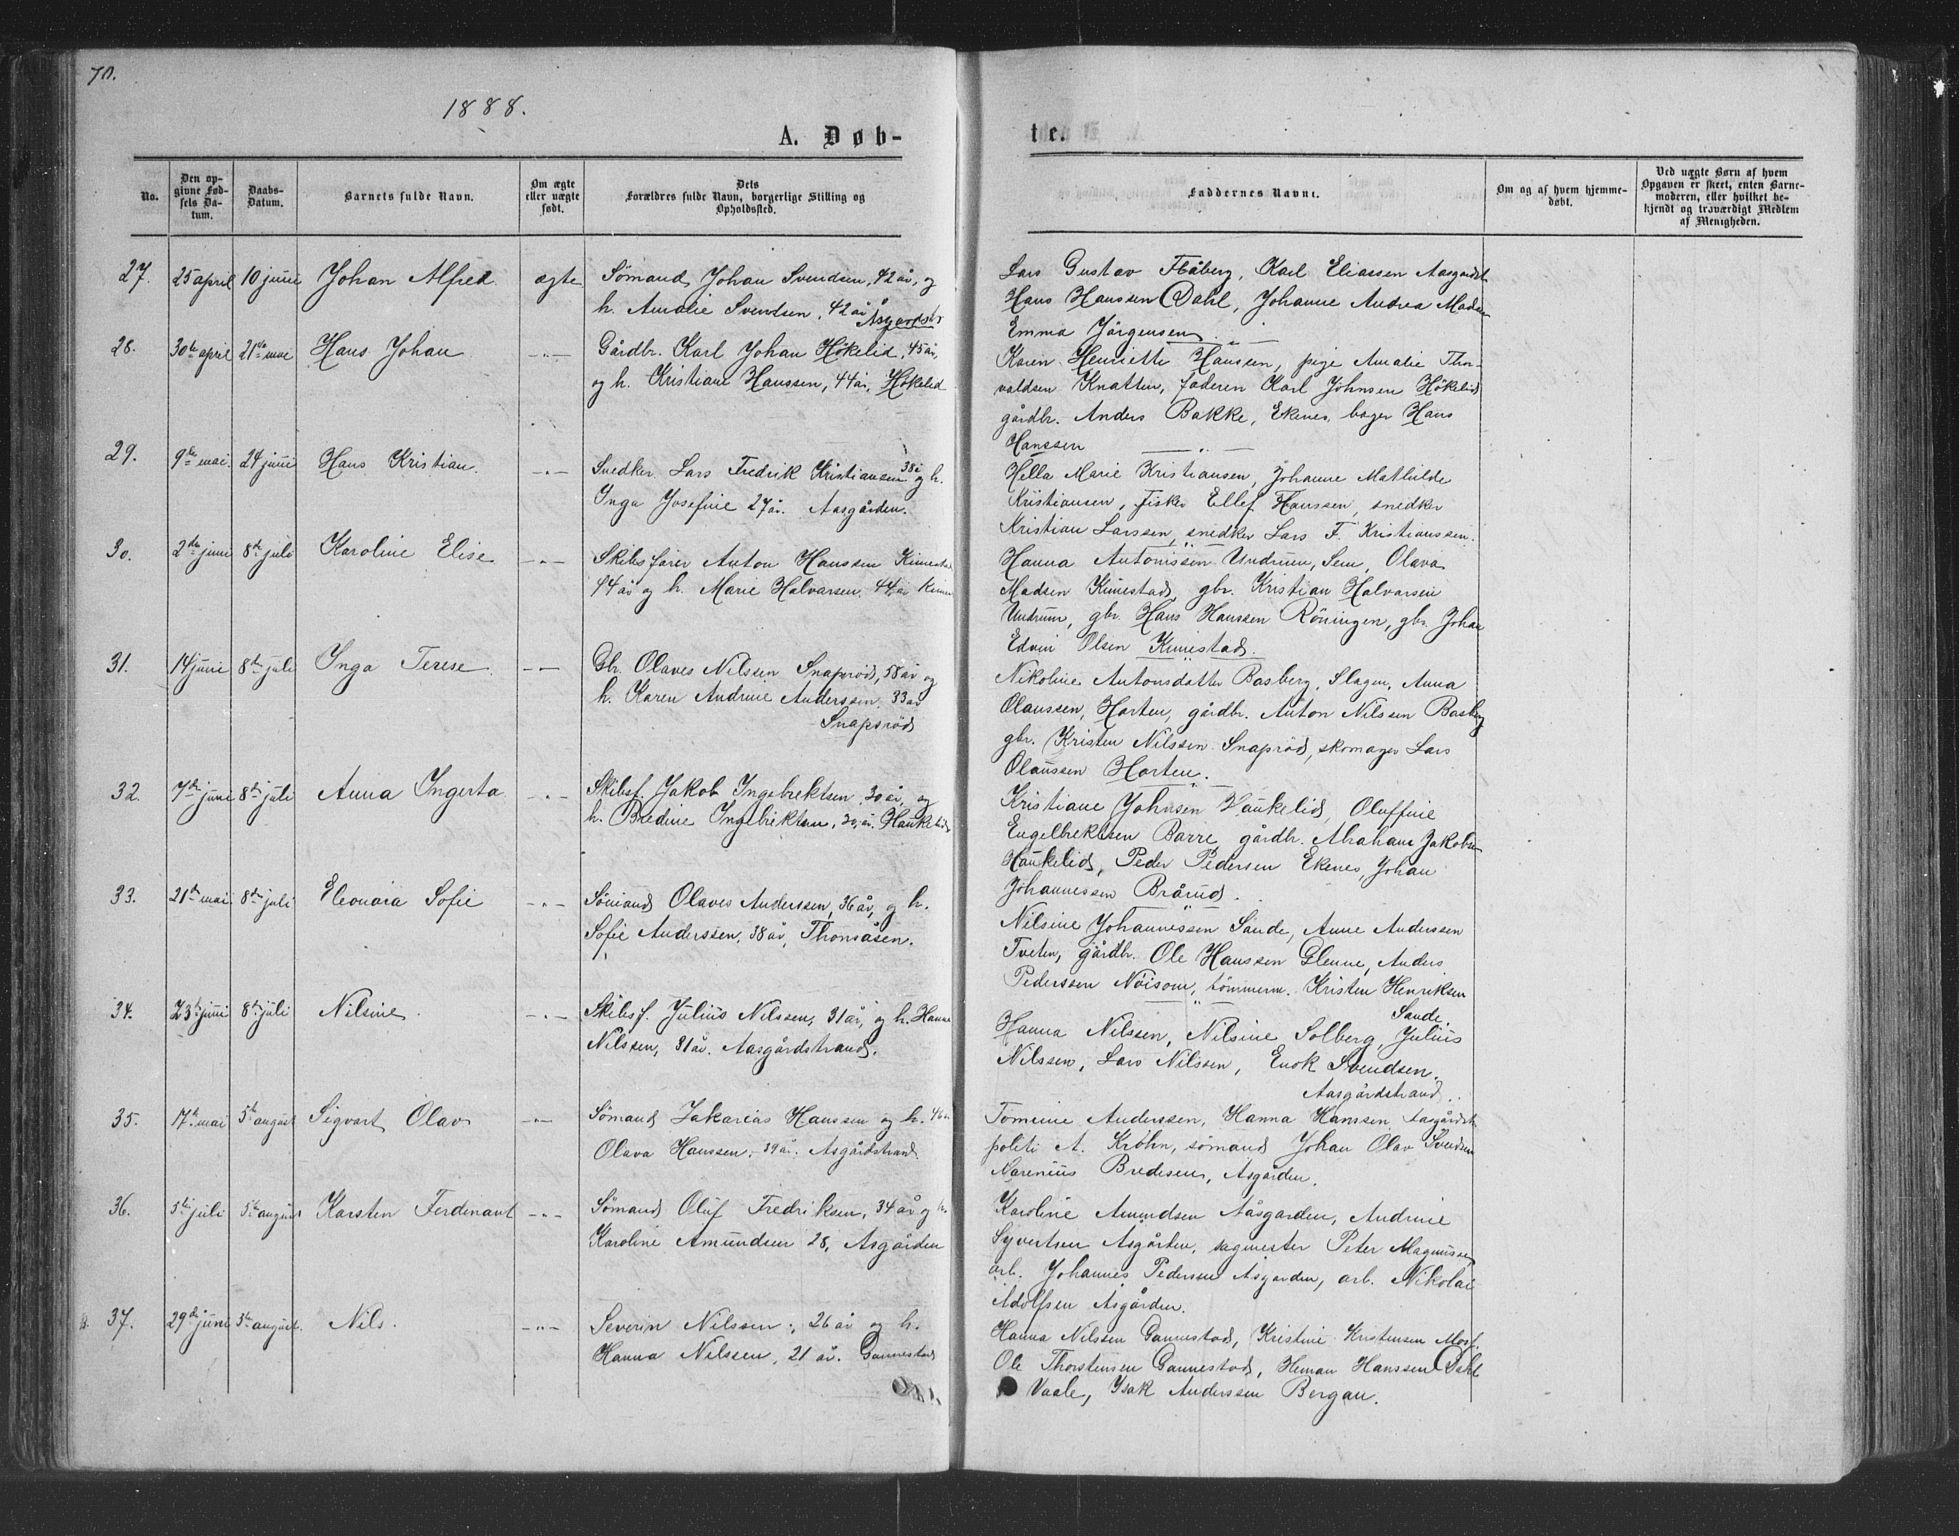 70.
1888.
A. Døb-
No.
Den op-
givne Fød-
sels Da-
tum.
Daabs-
Datum.
Barnets fulde Navn.
Om ægte
eller uægte
født.
Dets
Forældres fulde Navn, borgerlige Stilling og
Opholdssted.
27. 25 april 10 juni Johan Alfred ægte Sømand Johan Svendsen, 42 år, og
h. Amalie Svendsen, 42 år
28. 30te april 21de mai Hans Johan -„- Gårdbr. Karl Johan Høkelid, 45 år,
og h. Kristiane Hanssen, 44 år, Høkelid
29. 9de mai. 24 juni Hans Kristian. -„- Snedker Lars Fredrik Kristiansen 38 å og h.
Inga Josefine 27 år. Aasgården.
30. 2den juni 8de juli Karoline Elise -„- Skibsfører Anton Hanssen
44 år og h. Marie Halvarsen, 44 år
31. 14 juni 8de juli Inga Terese -„- Gbr. Olaves Nilsen Snapsrød, 58 år og
h. Karen Andrine Anderssen, 33 år
Snapsrød
32. 7de juni 8de juli Anna Ingerta -„- Skibsf. Jakob Ingebrektsen, 30 år, og
h. Bredine Ingebrektsen, 30 år. Haukelid
33. 21de mai 8de juli Eleonora Sofie -„- Sømand Olaves Anderssen, 36 år, og h.
Sofie Anderssen, 38 år, Thonsåsen.
34. 23de juni 8de juli Nilsine. -„- Skibsf. Julius Nilssen, 31 år, og h. Hanna
Nilssen, 31 år. Aasgårdstrand.
35. 17de mai 5te august Sigvart Olav -„- Sømand Zakarias Hanssen og h. 46
Olava Hanssen, 39 år. Asgårdstrand.
36. 5te juli 5te august Karsten Ferdinant -„- Sømand Oluf Fredriksen, 34 år og h.
Karoline Amundsen 28, Asgården
37. 29de juni 5te august. Nils. -„- Severin Nilssen, 26 år og h.
Hanna Nilssen, 21 år. Gannestad
te.
Faddernes Navne.
Om og af hvem hjemme-
døbt.
Ved uægte Børn af hvem
Opgaven er skeet, enten Barne-
moderen, eller hvilket be-
kjendt og troværdigt Medlem
af Menigheden.
Lars Gustav Flåberg, Karl Eliassen Aasgårdst
Hans Hanssen Dahl, Johanne Andrea Madsen
Emma Jørgensen
Karen Henriette Hanssen, pige Amalie Thor-
valdsen Knatten, faderen Karl Johnsen Høkelid
gårdbr. Anders Bakke, Ekenes, bager Hans
Hanssen
Hella Marie Kristiansen, Johanne Mathilde
Kristiansen, fisker Ellef Hanssen, snedker
Kristian Larssen, snedker Lars F. Kristianssen.
Hanna Antonissen Undrum, Sem, Olava
Madsen Kinnestad, gbr. Kristian Halvarsen
Undrum, gbr. Hans Hanssen Röningen, gbr. Johan
Edvin Olsen Kinnestad.
Nikoline Antonsdatter Basberg, Slagen, Anna
Olaussen, Horten, gårdbr. Anton Nilssen Basberg
gbr. Kristen Nilssen Snapsrød, skomager Lars
Olaussen Horten.
Kristiane Johnsen Haukelid, Oluffine
Engelbrektsen Barre, gårdbr. Abraham Jakobsen
Haukelid, Peder Pedersen Ekenes, Johan
Johannessen Brårud.
Nilsine Johannessen Sande, Anne Anderssen
Tveten, gårdbr. Ole Hanssen Glenne, Anders
Pederssen Nöisom, tømmerm. Kristen Henriksen
Sande.
Hanna Nilssen, Nilsine Solberg, Julius
Nilssen, Lars Nilssen, Enok Svendsen.
Aasgårdstrand.
Tomine Anderssen, Hanna Hanssen, Aasgårdst
politi A. Krøhn, sømand Johan Olav Svendsen
Narenius Bredesen, Asgården.
Karoline Amundsen Aasgarden, Andrine
Syvertsen Asgården, sagmester Peter Magnussen
arb. Johannes Pedersen Asgarden, arb. Nikolai
Adolfsen Asgården.
Hanna Nilssen Gannestad, Kristine Kristensen
Ole Thorstensen Gannestad, Herman Hanssen Dahl
Vaale, Isak Anderssen Bergan.